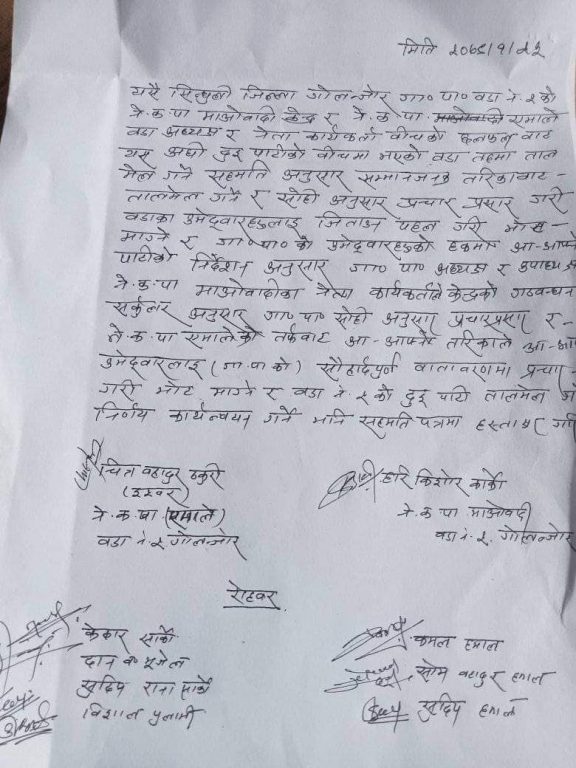 मिति २०७९/१/२३
यसै सिन्धुली जिल्ला गोलन्जोर गा॰ पा॰ वडा नं. २ को
ने.क.पा माओवादी केन्द्र र ने.क.पा. एमाले
वडा अध्यक्ष र नेता कार्यकर्ता बीचको छलफल वाट
यस अघी दुइ पार्टीको वीचमा भएको वडा तहमा ताल
मेल गर्ने सहमति अनुसार सम्मानजनक तरिकावाट -
तालमेल गर्ने र सोही अनुसार प्रचार प्रसार गरी
वडाका उमेदवारहरुलाइ जिताउन पहल गरी भोट
माग्ने र गा॰ पा॰ को उमेदवारहरुको हकमा आ-आफ्नो
पार्टीको निर्देशन अनुसार गा॰ पा॰ अध्यक्ष र उपाध्यक्ष
ने.क.पा माओवादीका नेता कार्यकर्ताले केन्द्रको गठवन्धन
सर्कुलर अनुसार गा॰ पा॰ सोही अनुसार प्रचारप्रसार र -
ने.क.पा एमालेको तर्फवाट आ-आफ्नो तरिकाले आ-आ
उमेदवारलाइ (गा.पा को) सौहार्दपुर्ण वातावरणमा प्रचा
गरी भोट माग्ने र वडा नं. २ को दुइ पार्टी तालमेल
निर्णय कार्यन्वयन गर्ने भनि सहमति पत्रमा हस्ताक्षर गरि
चित्र वहादुर ठकुरी
(इश्वर)
ने.क.पा (एमाले)
वडा नं. २ गोलन्जोर
हरि किशोर कार्की
ने.क.पा माओवादी
वडा नं. २, गोलन्जोर
रोहवर
केदार सार्की
दान व. भुजेल
सुदिप राना सार्की
विशाल पुलामी
कमल हमाल
सोम वहादुर हमाल
सुदिप हमाल